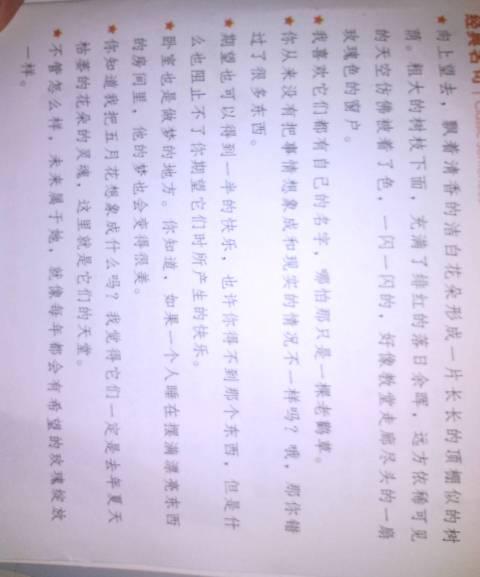 经典名句
★ 向上望去，飘着清香的洁白花朵形成一片长长的顶棚似的树
荫。粗大的树枝下面，充满了绯红的落日余晖，远方依稀可见
的天空仿佛被着了色，一闪一闪的，好像教堂走廊尽头的一扇
玫瑰色的窗户。
★ 我喜欢它们都有自己的名字，哪怕那只是一棵老鹳草。
★ 你从来没有把事情想象成和现实的情况不一样吗？哦，那你错
过了很多东西。
★ 期望也可以得到一半的快乐，也许你得不到那个东西，但是什
么也阻止不了你期望它们时所产生的快乐。
★ 卧室也是做梦的地方。你知道，如果一个人睡在摆满漂亮东西
的房间里，他的梦也会变得很美。
★ 你知道我把五月花想象成什么吗？我觉得它们一定是去年夏天
枯萎的花朵的灵魂，这里就是它们的天堂。
★ 不管怎么样，未来属于她，就像每年都会有希望的玫瑰绽放
一样。